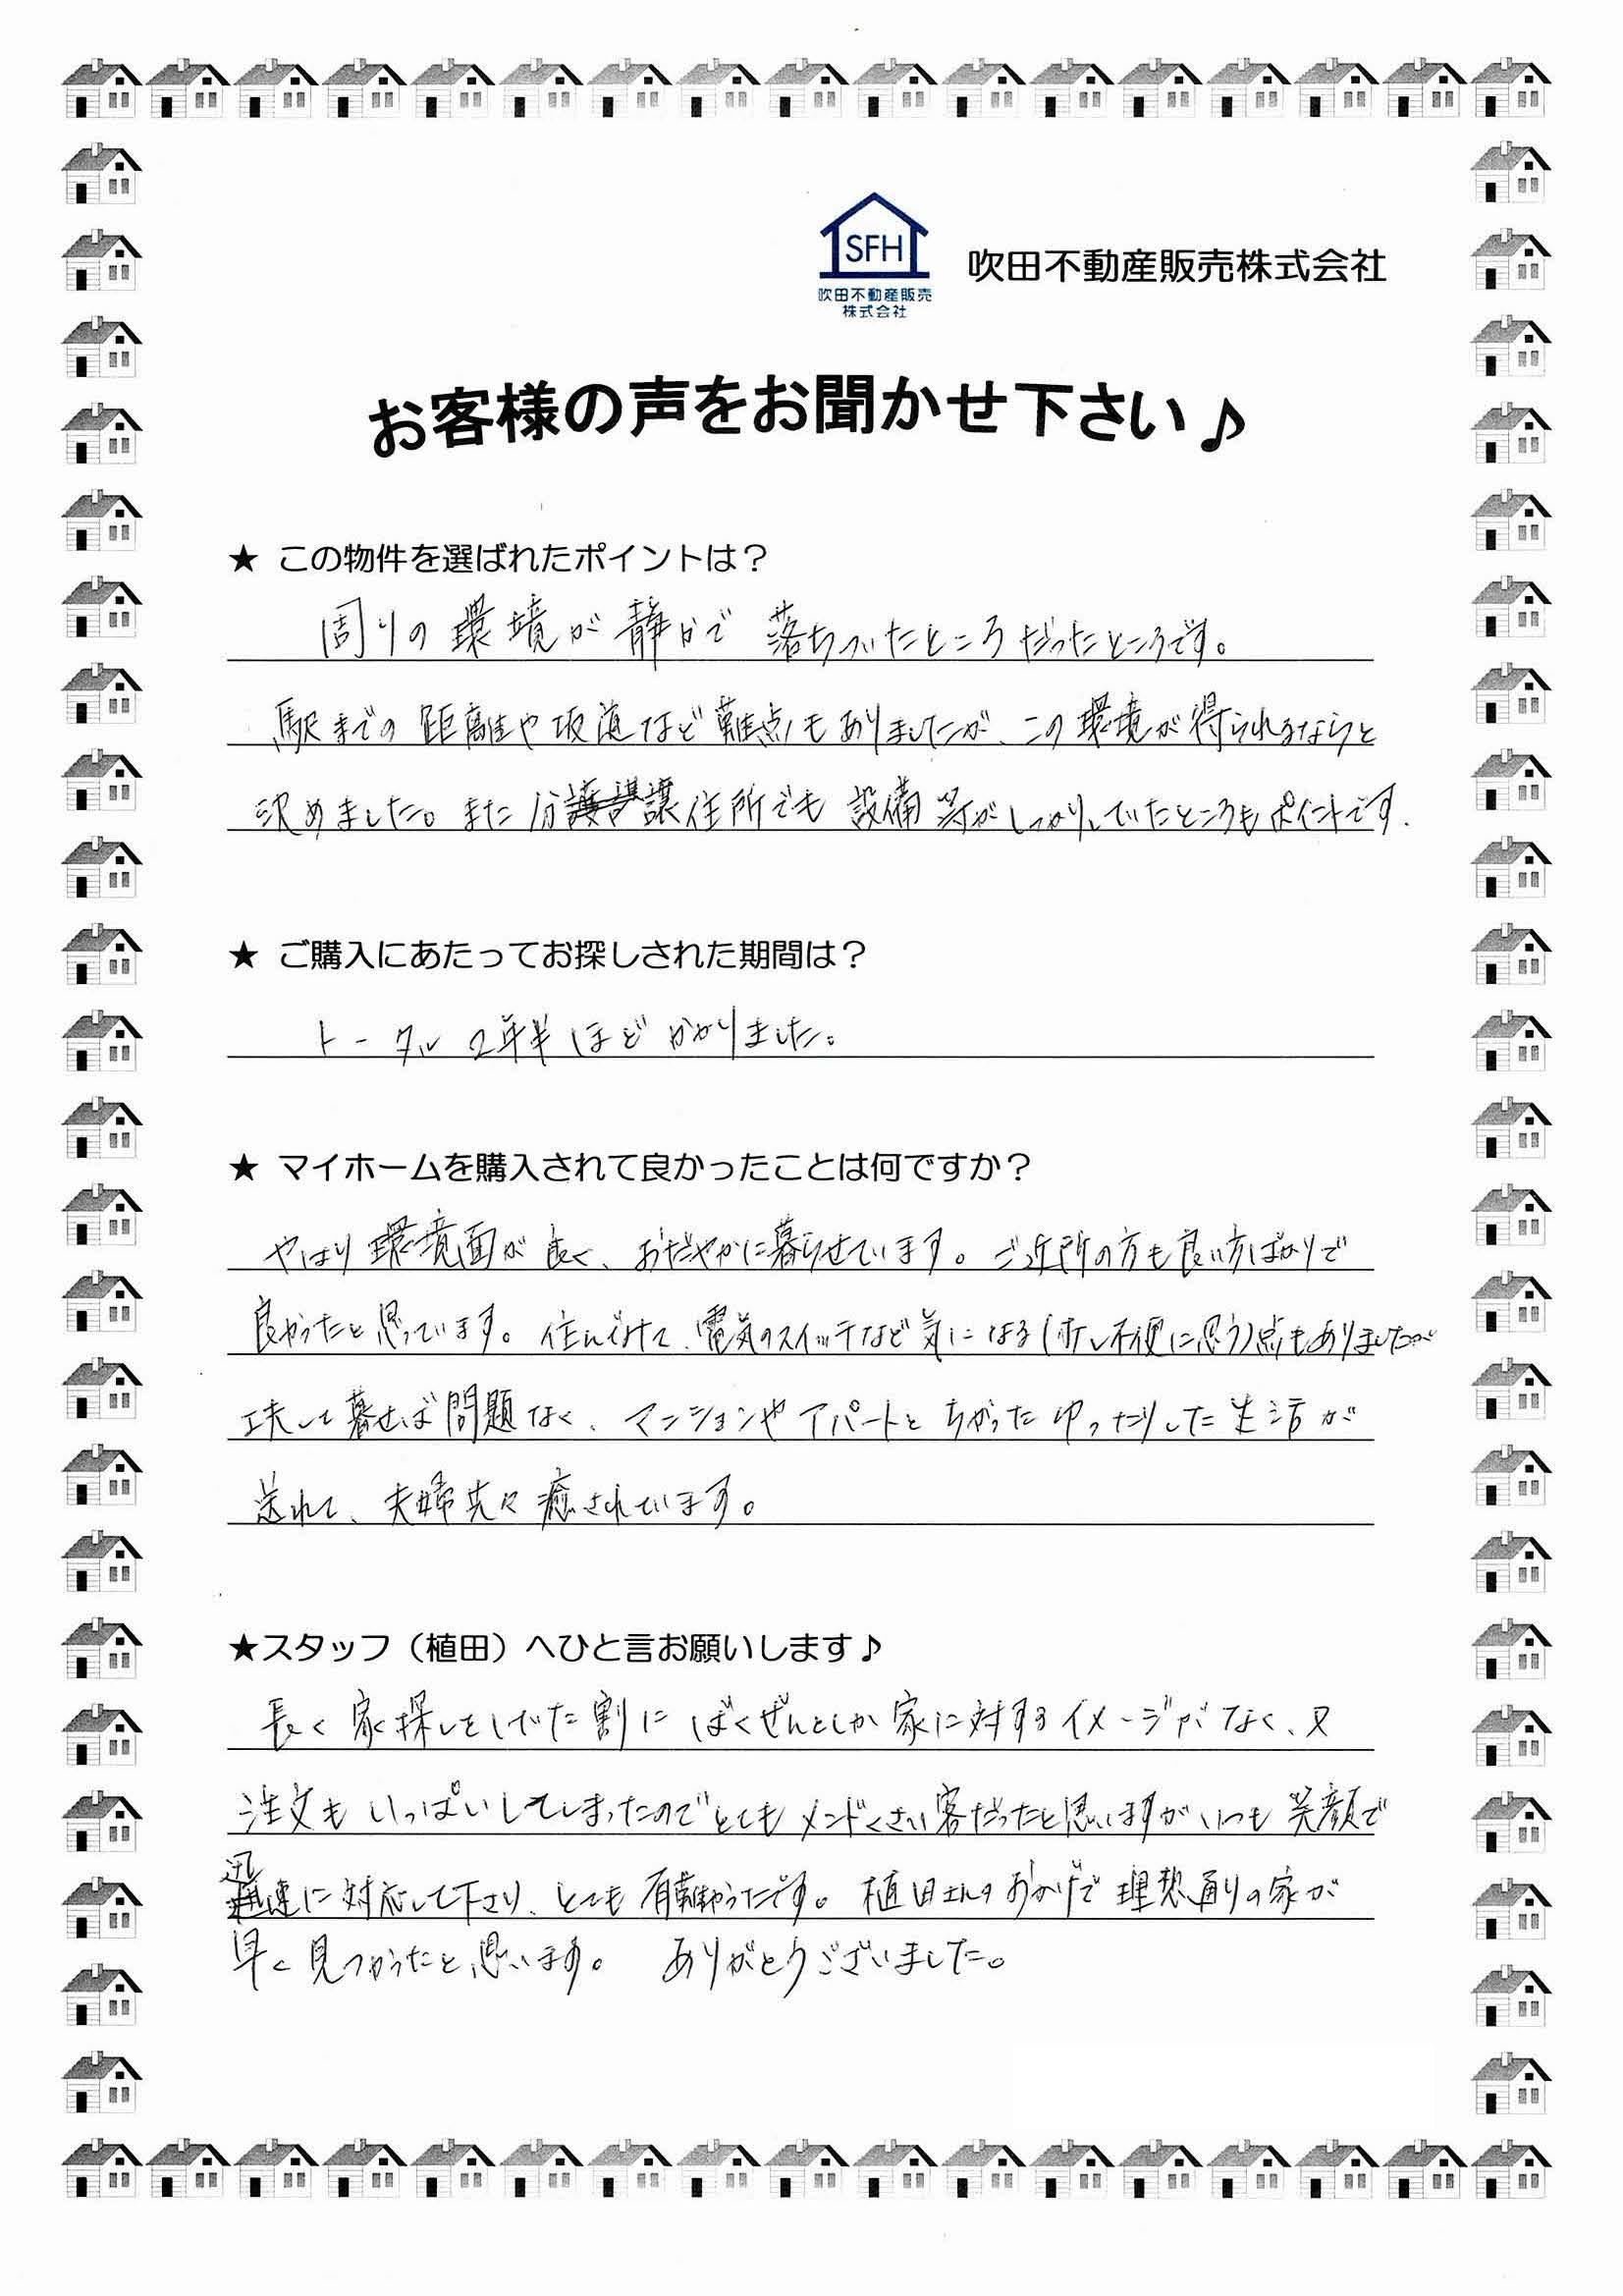 SFH
吹田不動産販売
株式会社
吹田不動産販売株式会社
お客様の声をお聞かせ下さい♪
★ この物件を選ばれたポイントは？
周りの環境が静かで落ちついたところだったところです。
駅までの距離や坂道など難点もありましたが、この環境が得られるならと
決めました。また分譲住所でも設備等がしっかりしていたところもポイントです.
★ ご購入にあたってお探しされた期間は？
トータル2年半ほどかかりました。
★ マイホームを購入されて良かったことは何ですか？
やはり環境面が良く、おだやかに暮らせています。ご近所の方も良い方ばかりで
良かったと思っています。住んでみて、電気のスイッチなど気になる(少し不便に思う)点もありましたが
工夫して暮せば問題なく、マンションやアパートとちがったゆったりした生活が
送れて、夫婦共々癒されています。
★スタッフ（植田）へひと言お願いします♪
長く家探しをしてた割にばくぜんとしか家に対するイメージがなく、又
注文もいっぱいしてしまったのでとてもメンドくさい客だったと思いますがいつも笑顔で
迅速に対応して下さり、とても有難かったです。植田さんのおかげで理想通りの家が
早く見つかったと思います。 ありがとうございました。